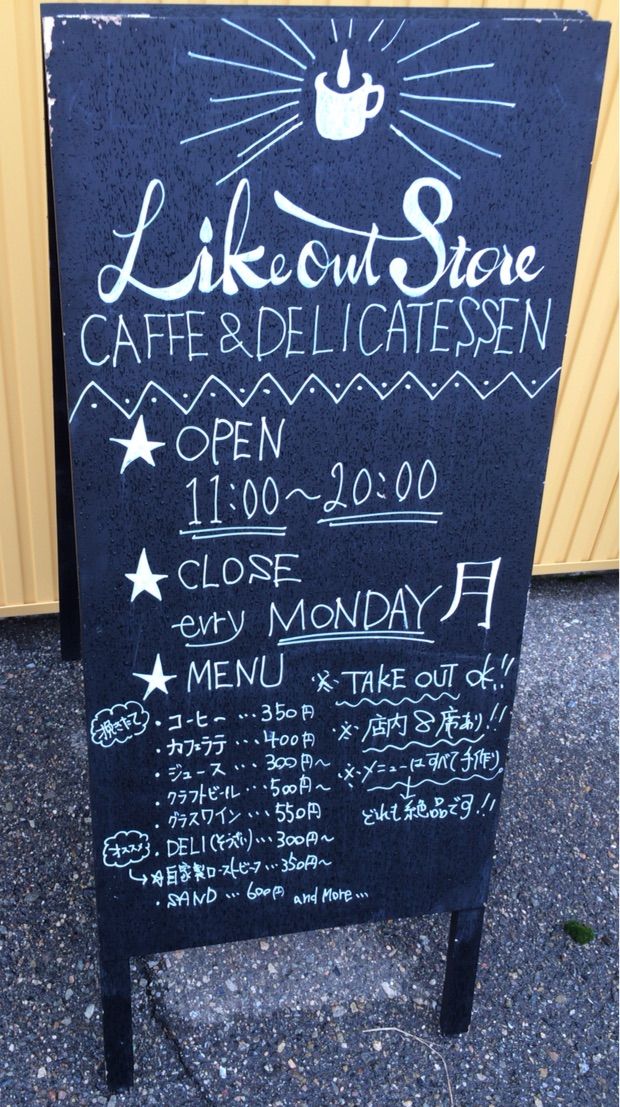 Like out Store
CAFFE & DELICATESSEN
★ OPEN
11:00～20:00
★ CLOSE
evry MONDAY 月
★ MENU
挽きたて
・コーヒー …350円
・カフェラテ …400円
・ジュース …300円～
・クラフトビール …500円～
・グラスワイン …550円
オススメ
・DELI(そうざい)…300円～
→☆自家製ローストビーフ…350円～
・SAND …600円 and More…
※TAKE OUT ok!!
※店内8席あり!!
※メニューはすべて手作り。
↓
どれも絶品です!!